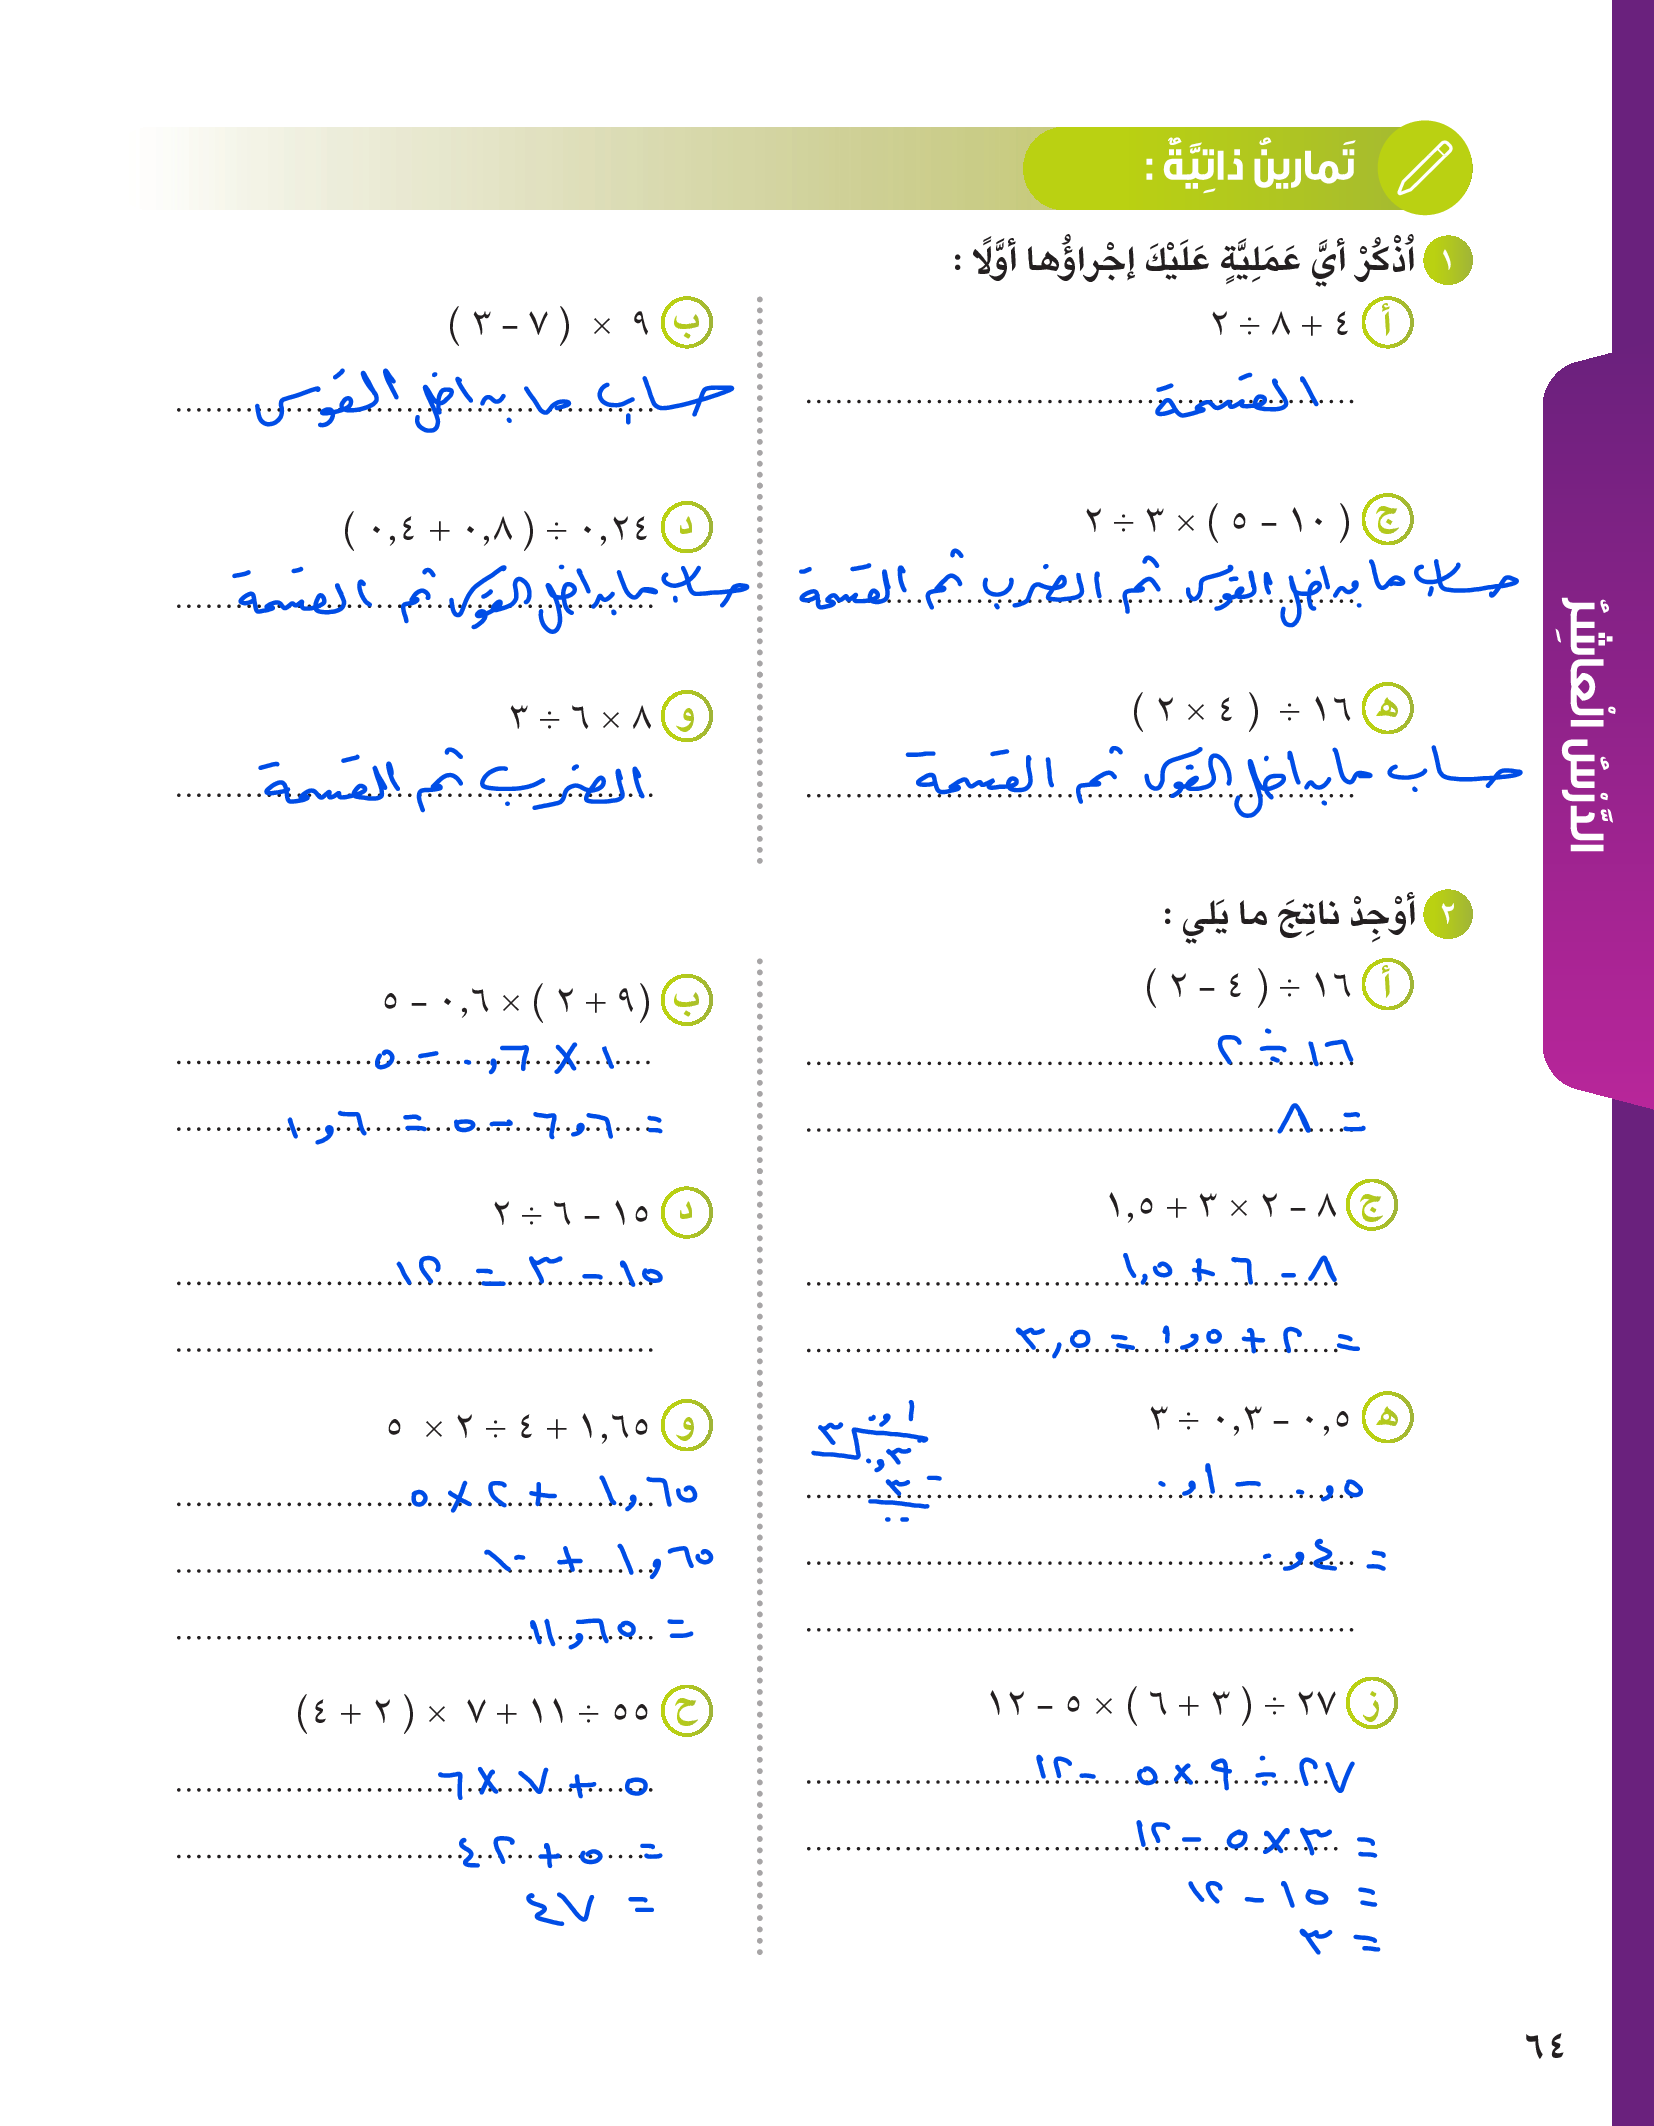 تَمارينُ ذاتِيَّةٌ :
١ اُذْكُرْ أيَّ عَمَلِيَّةٍ عَلَيْكَ إجْراؤُها أوَّلًا :
أ ٤ + ٨ ÷ ٢
القسمة
ب ٩ × ( ٧ – ٣ )
حساب ما بداخل القوس
ج ( ١٠ – ٥ ) × ٣ ÷ ٢
حساب ما بداخل القوس ثم الضرب ثم القسمة
د ٠,٢٤ ÷ ( ٠,٨ + ٠,٤ )
حساب ما بداخل القوس ثم القسمة
ه ١٦ ÷ ( ٤ × ٢ )
حساب ما بداخل القوس ثم القسمة
و ٨ × ٦ ÷ ٣
الضرب ثم القسمة
٢ أوْجِدْ ناتِجَ ما يَلي :
أ ١٦ ÷ ( ٤ – ٢ )
١٦ ÷ ٢
= ٨
ب (٩ + ٢ ) × ٠,٦ – ٥
١ × ٠,٦ – ٥
= ٦,٦ – ٥ = ١,٦
ج ٨ – ٢ × ٣ + ١,٥
٨ – ٦ + ١,٥
= ٢ + ١,٥ = ٣,٥
د ١٥ – ٦ ÷ ٢
١٥ – ٣ = ١٢
ه ٠,٥ – ٠,٣ ÷ ٣
٠,١
٣ ٠,٣
– ٣
٠٠
٠,٥ – ٠,١
= ٠,٤
و ١,٦٥ + ٤ ÷ ٢ × ٥
١,٦٥ + ٢ × ٥
١,٦٥ + ١٠
= ١١,٦٥
ز ٢٧ ÷ ( ٣ + ٦ ) × ٥ – ١٢
٢٧ ÷ ٩ × ٥ – ١٢
= ٣ × ٥ – ١٢
= ١٥ – ١٢
= ٣
ح ٥٥ ÷ ١١ + ٧ × ( ٢ + ٤)
٥ + ٧ × ٦
= ٥ + ٤٢
= ٤٧
الدَّرْسُ الْعاشِرُ
٦٤